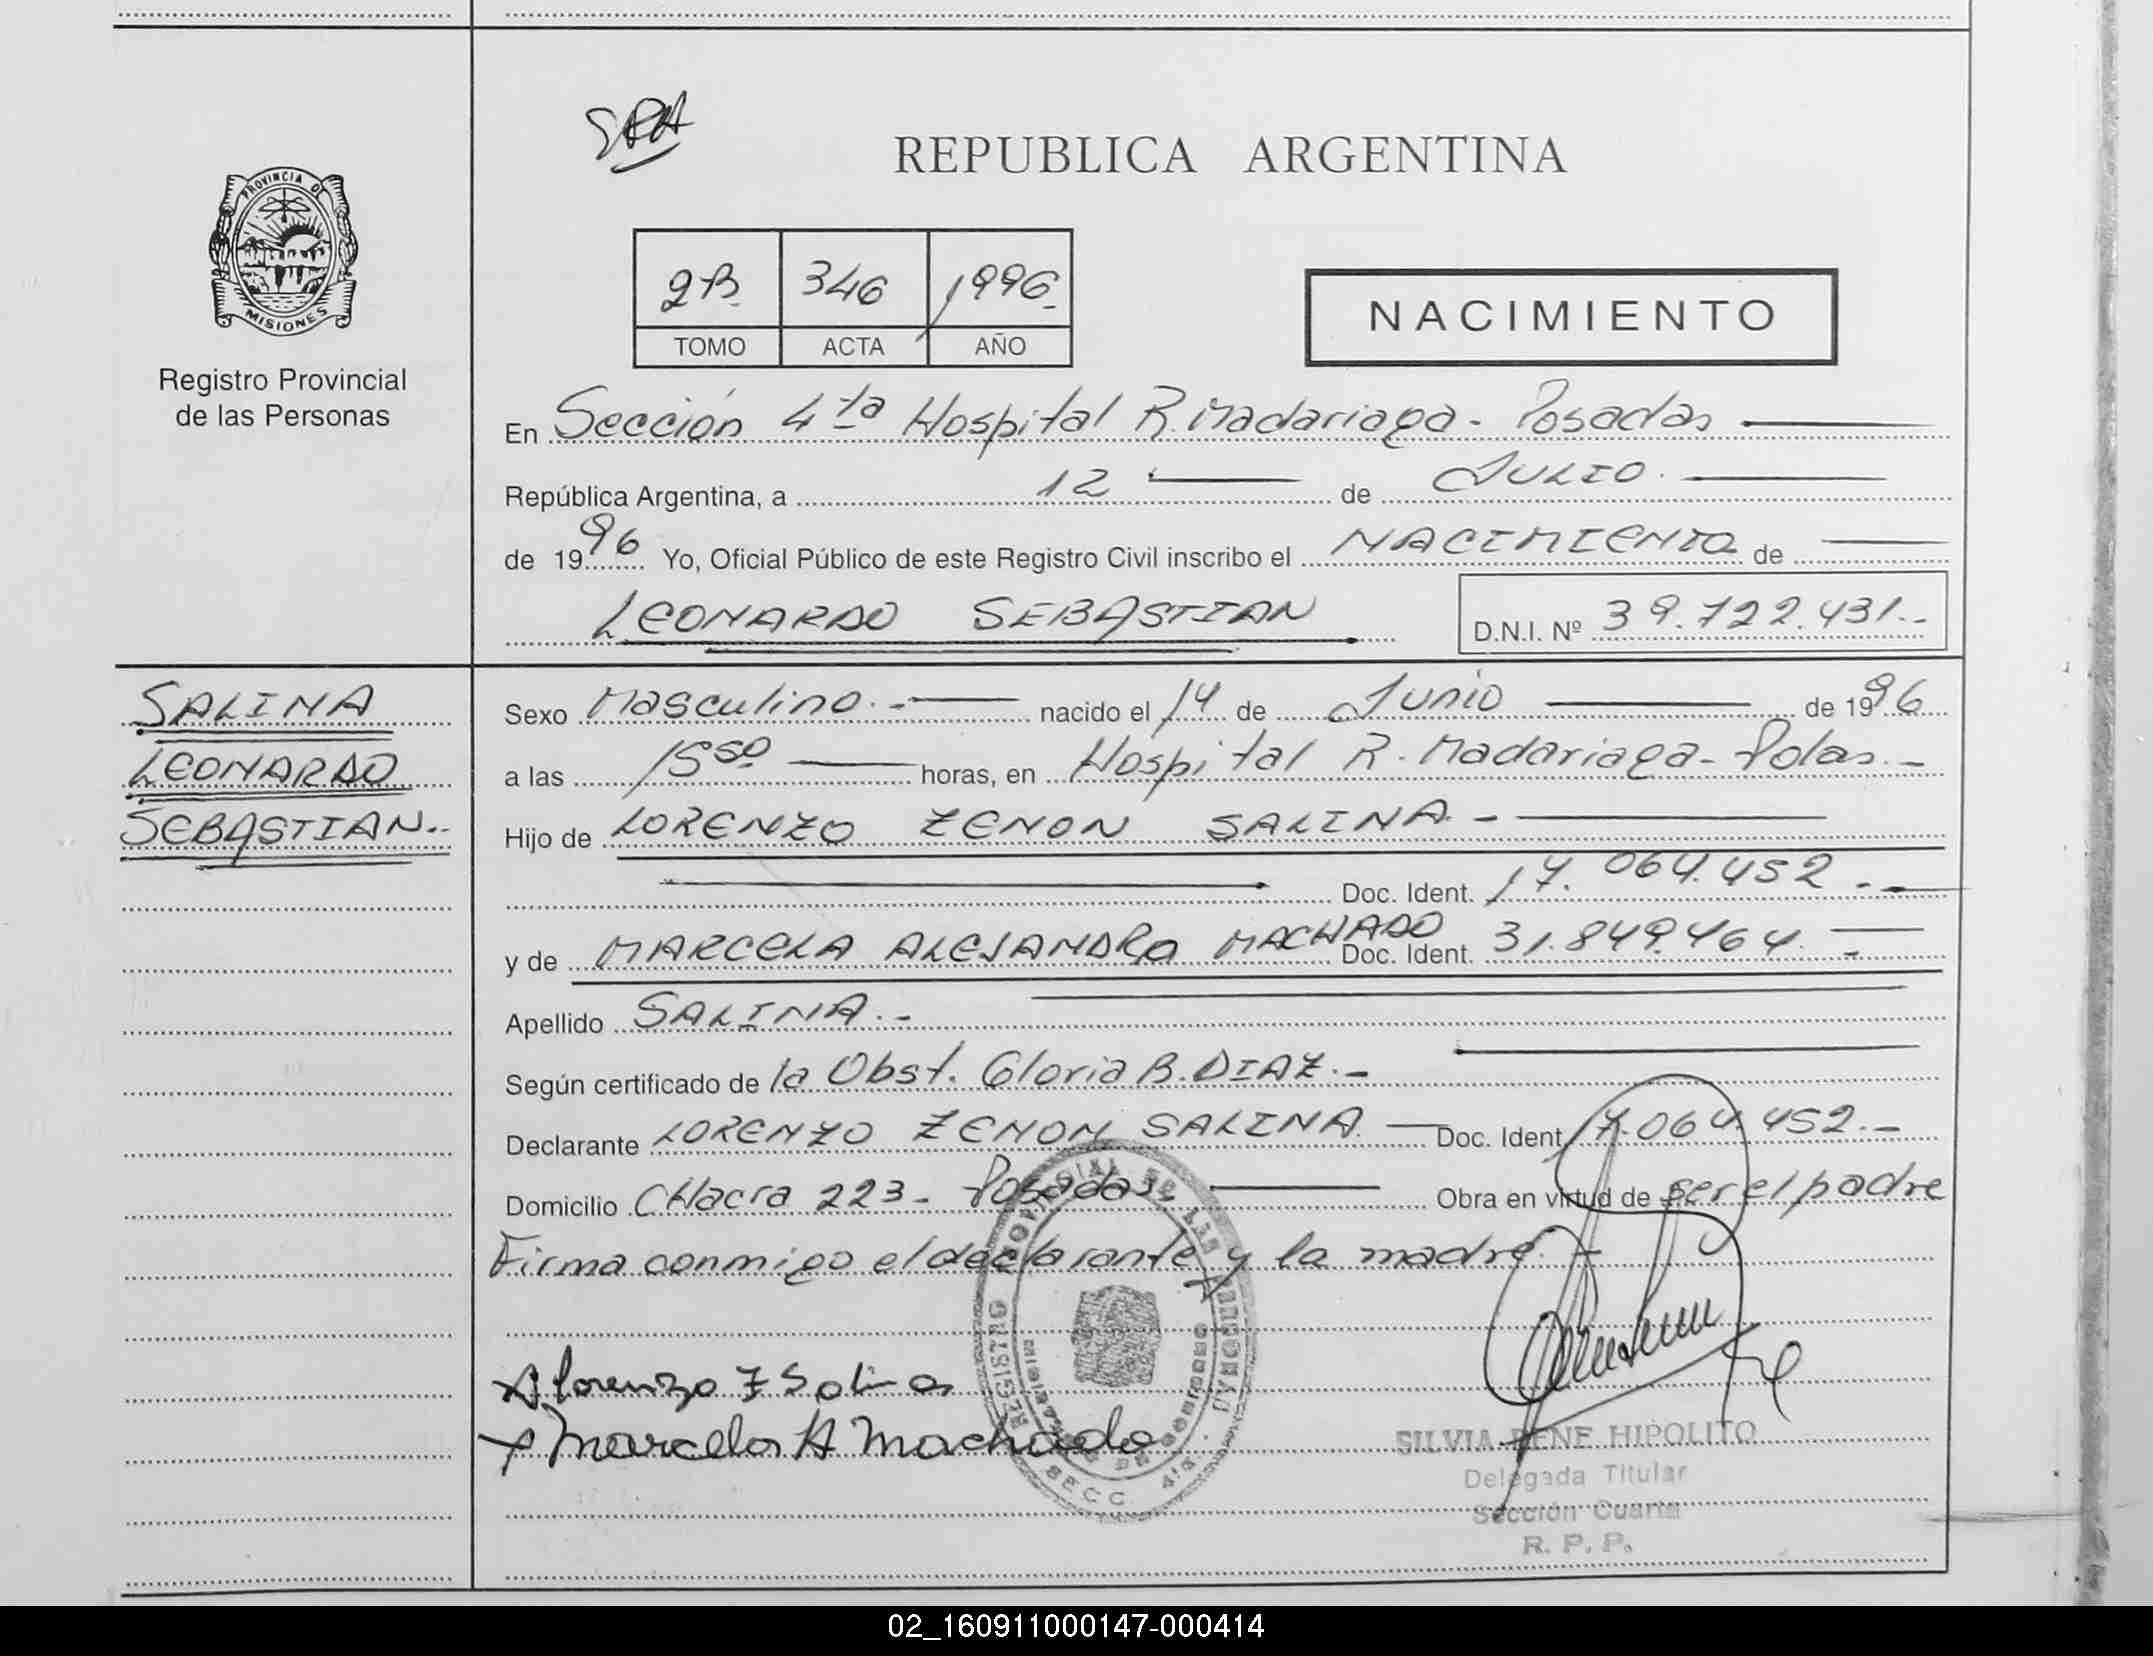 SRA
REPUBLICA ARGENTINA
PROVINCIA DE
MISIONES
Registro Provincial
de las Personas
2B. 346 1996.
TOMO ACTA AÑO
NACIMIENTO
En Sección 4ta Hospital R. Madariaga - Posadas
República Argentina, a 12 de JULIO.
de 1996 Yo, Oficial Público de este Registro Civil inscribo el NACIMIENTO de
LEONARDO SEBASTIAN D.N.I. Nº 39.722.431.-
SALINA
LEONARDO
SEBASTIAN.-
Sexo Masculino.- nacido el 14 de Junio de 1996
a las 15:50 horas, en Hospital R. Madariaga - Pdas.-
Hijo de LORENZO ZENON SALINA.-
Doc. Ident. 17.064.452.-
y de MARCELA ALEJANDRA MACHADO Doc. Ident. 31.849.464.-
Apellido SALINA.-
Según certificado de la Obst. Gloria B. DIAZ.-
Declarante LORENZO ZENON SALINA - Doc. Ident. 17.064.452.-
Domicilio CHacra 223 - Posadas. Obra en virtud de ser el padre
Firma conmigo el declarante y la madre.-
x Lorenzo Z Salina
x Marcela A Machado
REGISTRO PROVINCIAL DE LAS PERSONAS
SECC. 4ta.
SILVIA RENE HIPOLITO
Delegada Titular
Sección Cuarta
R. P. P.
02_160911000147-000414